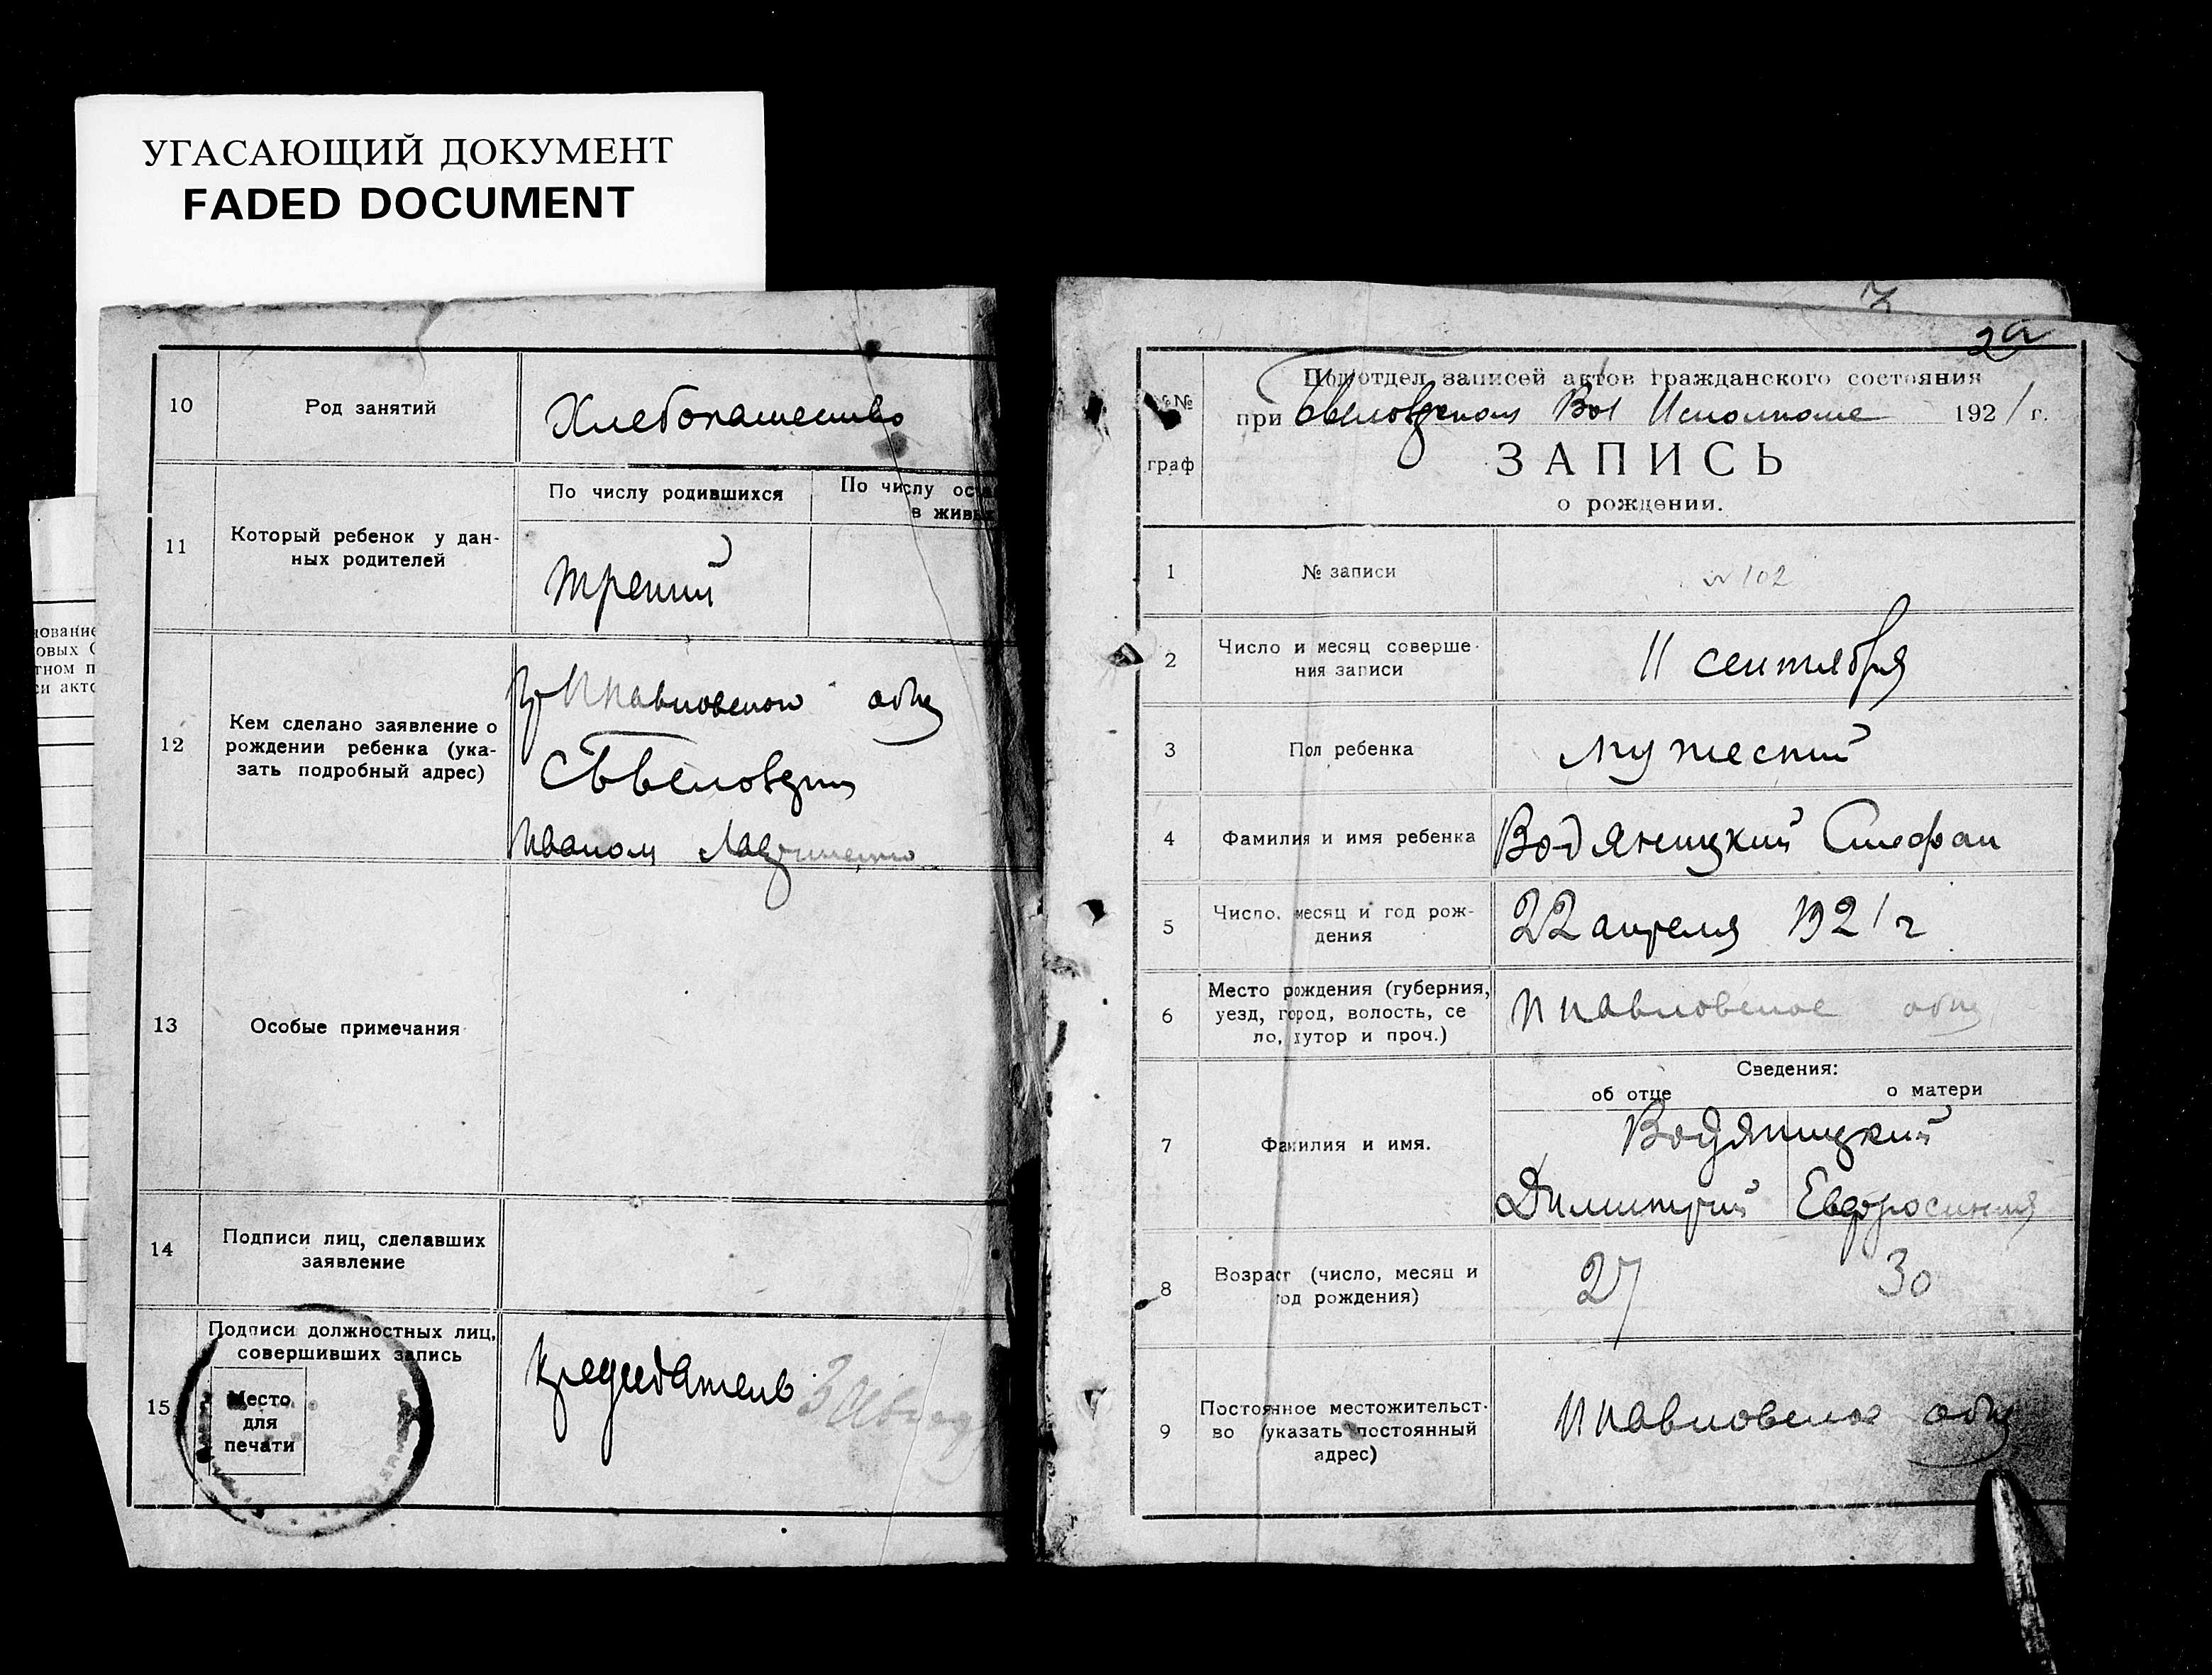 УГАСАЮЩИЙ ДОКУМЕНТ
FADED DOCUMENT
10
Род занятий
Хлебопашество
11
Который ребенок у дан-
ных родителей
По числу родившихся
По числу
в
третий
12
Кем сделано заявление о
рождении ребенка (ука-
зать подробный адрес)
Иваном
13
Особые примечания
14
Подписи лиц, сделавших
заявление
15
Подписи должностных лиц,
совершивших запись
Место
для
печати
председатель
2а
№№
граф
Подотдел записей актов гражданского состояния
при Вол Исполкоме 1921 г.
ЗАПИСЬ
о рождении.
1
№ записи
№ 102
2
Число и месяц соверше-
ния записи
11 сентября
3
Пол ребенка
мужеский
4
Фамилия и имя ребенка
Водяницкий Стефан
5
Число, месяц и год рож-
дения
22 апреля 1921 г
6
Место рождения (губерния,
уезд, город, волость, се
ло, хутор и проч.)
Н павловское общ
7
Фамилия и имя.
Сведения:
об отце
о матери
Водяницкий
Димитрий
Евфросиния
8
Возраст (число, месяц и
год рождения)
27
30
9
Постоянное местожительст-
во (указать постоянный
адрес)
Н павловское общ